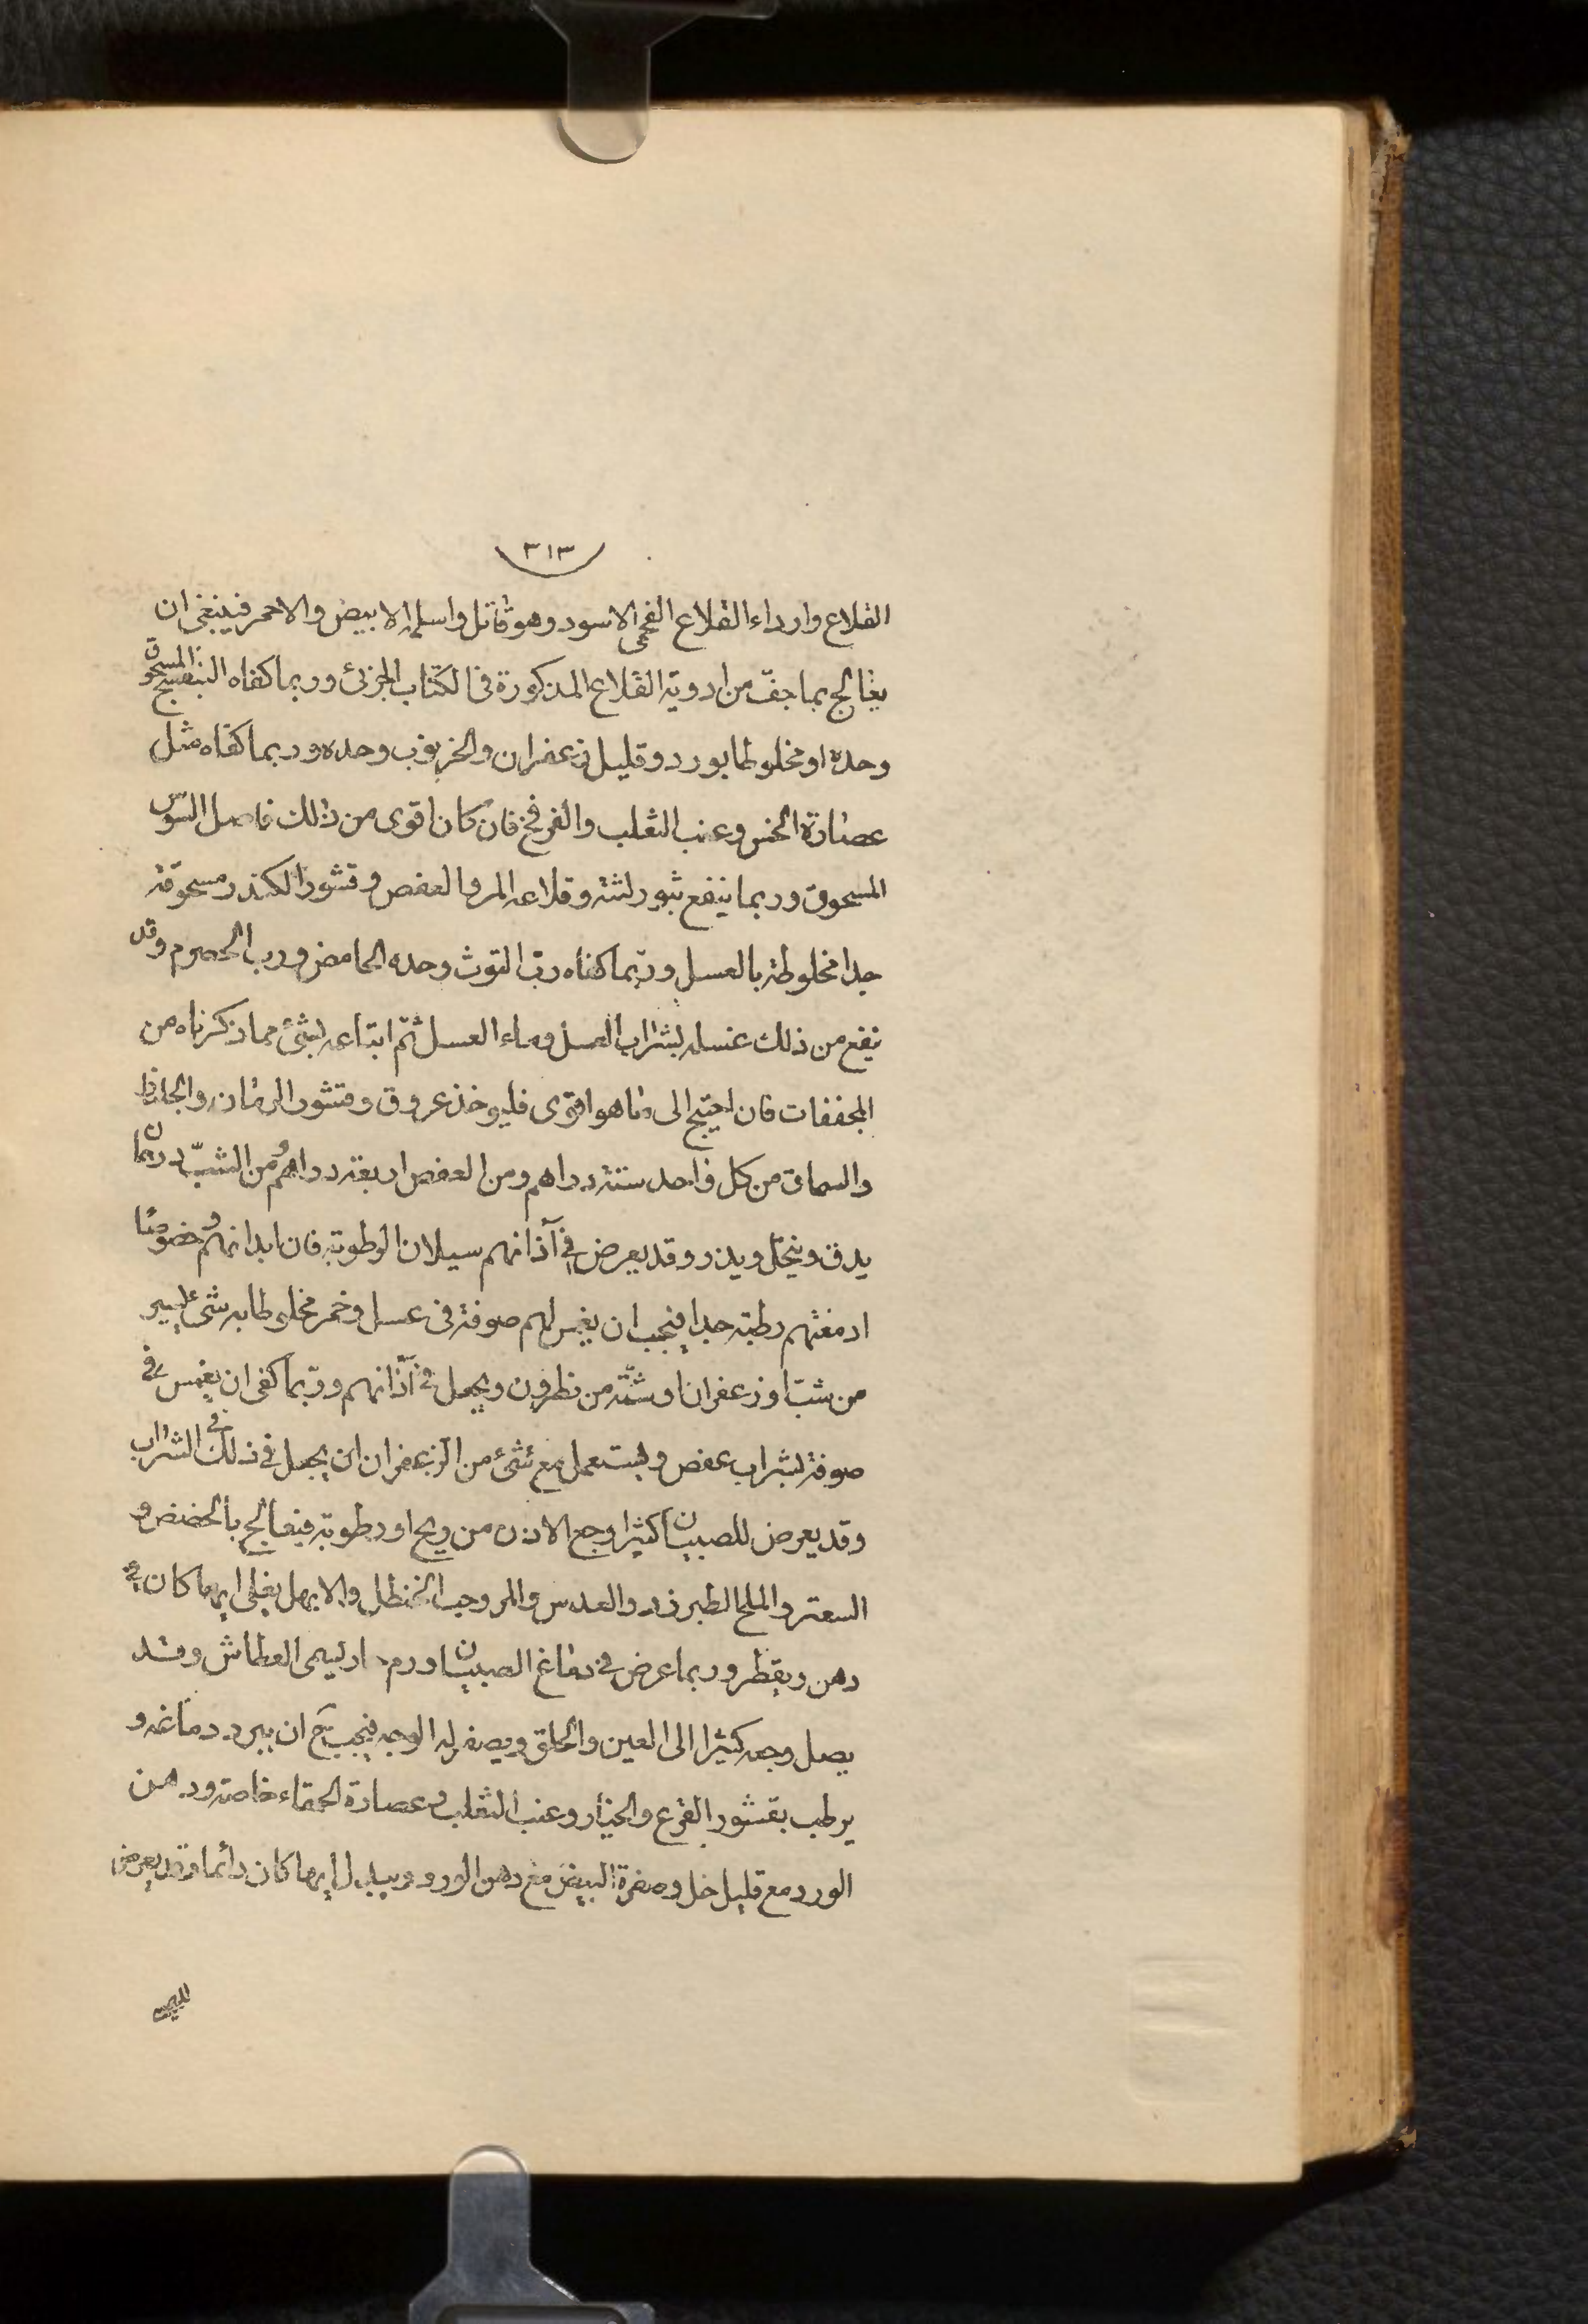 ٣١٣
القلاع وارداء القلاع الفحمى الاسود وهو قاتل واسلمه الابيض والاحمر فينبغى ان
يعالج بما جفّ من ادوية القلاع المذكورة فى الكتاب الجزئ وربما كفاه البنفسج المسحوق
وحده او مخلوطا بورد وقليل زعفران والخرنوب وحده وربما كفاه مثل
عصارة الخس وعنب الثعلب والفرفخ فان كان اقوى من ذلك فاصل السوس
المسحوق وربما ينفع بثور لثته وقلاعه المر والعفص وقشور الكندر مسحوقة
جدا مخلوطة بالعسل وربّما كفاه ربّ التوث وحده الحامض ورب الحصرم وقد
ينفع من ذلك غسله بشراب العسل وماء العسل ثمّ اتباعه بشئ مما ذكرناه من
المجففات فان احتيج الى ما هو اقوى فليوخذ عروق وقشور الرمان والجلنار
والسماق من كل واحد ستة دراهم ومن العفص اربعة دراهم ومن الشبّ درهمان
يدق وينخل ويذر وقد يعرض فى آذانهم سيلان الرطوبة فان ابدانهم وخصوصا
ادمغتهم رطبة جدا فيجب ان يغمس لهم صوفة فى عسل وخمر مخلوطا به شئ يسير
من شبّ او زعفران او شمّة من نطرون ويجعل فى آذانهم وربّما كفى ان يغمس فى
صوفة بشراب عفص ويستعمل مع شئ من الزعفران ان يجعل فى ذلك فى الشراب
وقد يعرض للصبيان كثيرا وجع الاذن من ريح او رطوبة فيعالج بالحضض و
السعتر والملح الطبرزد والعدس والمر وحب الحنظل والابهل يغلى ايها كان فى
دهن ويقطر وربما عرض فى دماغ الصبيان ورم حار يسمى العطاش وقد
يصل وجعه كثيرا الى العين والحلق ويصفر له الوجه فيجب ح ان يبرد دماغه و
يرطب بقشور القرع والخيار وعنب الثعلب وعصارة الحمقاء خاصة ودهن
الورد مع قليل خل وصفرة البيض مع دهن الورد ويبدل ايها كان دائما وقد يعرض